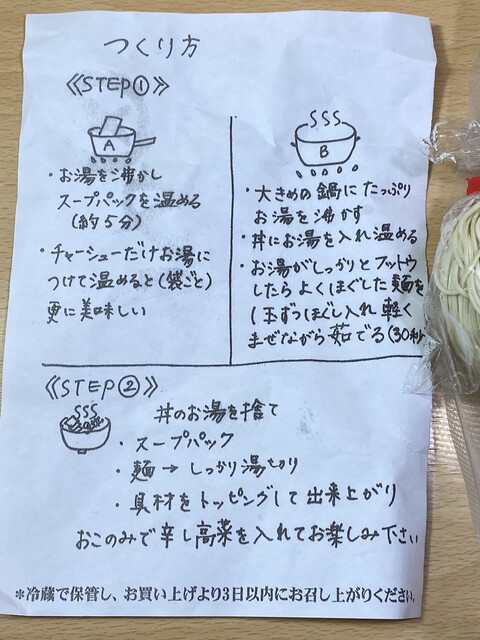 つくり方
≪STEP①≫
A
・お湯を沸かし
スープパックを温める
(約5分)
・チャーシューだけお湯に
つけて温めると(袋ごと)
更に美味しい
B
・大きめの鍋にたっぷり
お湯を沸かす
・丼にお湯を入れ温める
・お湯がしっかりとフットウ
したらよくほぐした麺を
1玉ずつほぐし入れ軽く
まぜながら茹でる(30秒
≪STEP②≫
丼のお湯を捨て
・スープパック
・麺→しっかり湯切り
・具材をトッピングして出来上がり
おこのみで辛し高菜を入れてお楽しみ下さい
*冷蔵で保管し、お買い上げより3日以内にお召し上がりください。